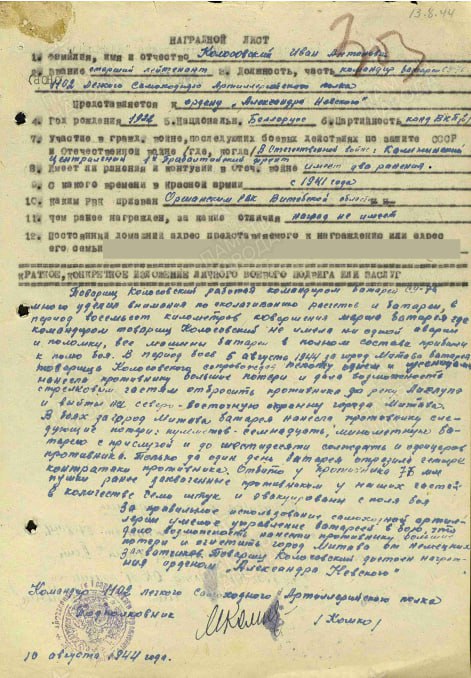 13.8.44
НАГРАДНОЙ ЛИСТ
1. Фамилия, имя и отчество Колосовский Иван Антонович
2. Звание старший лейтенант 3. Должность, часть командир батареи
1102 легкого Самоходного Артиллерийского полка
Представляется к ордену „Александра Невского"
4. Год рождения 5. Национальн. Белоррус 6. Партийность канд ВКП(б)
7. Участие в гражд. войне, последующих боевых действиях по защите СССР
и Отечественной войне /где, когда/ В Отечественной войне: Калининский
Центральный 1й Прибалтийский фронт
8. Имеет ли ранения и контузии в Отеч. войне имеет два ранения.
9. С какого времени в Красной армии с 1941 года
10. Каким РВК призван Оршанским РВК Витебской области
11. Чем ранее награжден, за какие отличия наград не имеет
12. Постоянный домашний адрес представляемого к награждению или адрес
его семьи
КРАТКОЕ, КОНКРЕТНОЕ ИЗЛОЖЕНИЕ ЛИЧНОГО БОЕВОГО ПОДВИГА ИЛИ ЗАСЛУГ
Товарищ Колосовский работая командиром батареи СУ-76
много уделил внимания по сколачиванию расчетов и батареи, в
период восемьсот километров совершения марша батарея где
командиром товарищ Колосовский не имела ни одной аварии
и поломки, все машины батареи в полном составе прибыли
к полю боя. В период боев 5 августа 1944 за город Митава батарея
товарища Колосовского сопровождая пехоту огнем и гусеницами
нанесла противнику большие потери и дала возможность
стрелковым частям отбросить противника до реки Лиелупе
и выйти на северо-восточную окраину города Митава.
В боях за город Митава батарея нанесла противнику сле-
дующие потери: пулеметов-семнадцать, минометную ба-
тарею с прислугой и до шестидесяти солдат и офицеров
противника. Только за один день батарея отразила четыре
контратаки противника. Отбито у противника 76 мм
пушки ранее захваченные противником у наших частей
в количестве семи штук и эвакуированы с поля боя
За правильное использование самоходной артил-
лерии умелое управление батареей в бою, что
дало возможность нанести противнику большие
потери и очистить город Митава от немецких
захватчиков. Товарищ Колосовский достоин награж-
ния орденом „Александра Невского"
Командир 1102 легкого Самоходного Артиллерийского полка
Подполковник /Комко/
10 августа 1944 года.